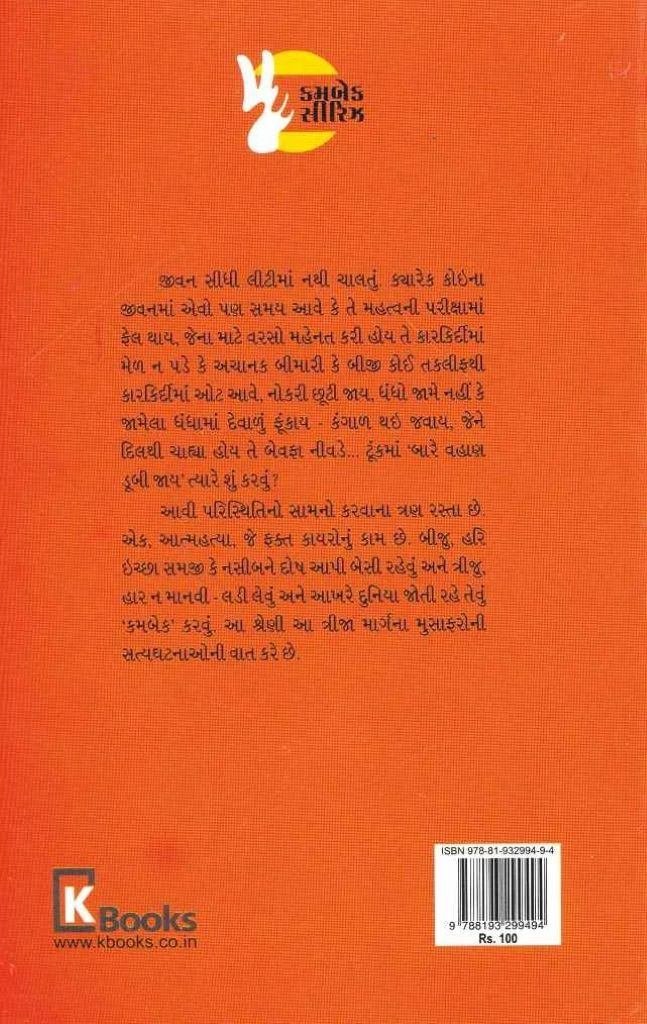 કમબેક
સીરિઝ
જીવન સીધી લીટીમાં નથી ચાલતું. ક્યારેક કોઇના
જીવનમાં એવો પણ સમય આવે કે તે મહત્વની પરીક્ષામાં
ફેલ થાય, જેના માટે વરસો મહેનત કરી હોય તે કારકિર્દીમાં
મેળ ન પડે કે અચાનક બીમારી કે બીજી કોઈ તકલીફથી
કારકિર્દીમાં ઓટ આવે, નોકરી છૂટી જાય, ધંધો જામે નહીં કે
જામેલા ધંધામાં દેવાળું ફૂંકાય - કંગાળ થઇ જવાય, જેને
દિલથી ચાહ્યા હોય તે બેવફા નીવડે... ટૂંકમાં ‘બારે વહાણ
ડૂબી જાય’ ત્યારે શું કરવું?
આવી પરિસ્થિતિનો સામનો કરવાના ત્રણ રસ્તા છે.
એક, આત્મહત્યા, જે ફક્ત કાયરોનું કામ છે. બીજુ, હરિ
ઇચ્છા સમજી કે નસીબને દોષ આપી બેસી રહેવું અને ત્રીજુ,
હાર ન માનવી - લડી લેવું અને આખરે દુનિયા જોતી રહે તેવું
‘કમબેક’ કરવું. આ શ્રેણી આ ત્રીજા માર્ગના મુસાફરોની
સત્યઘટનાઓની વાત કરે છે.
ISBN 978-81-932994-9-4
9 788193 299494
Rs. 100
K Books
www.kbooks.co.in